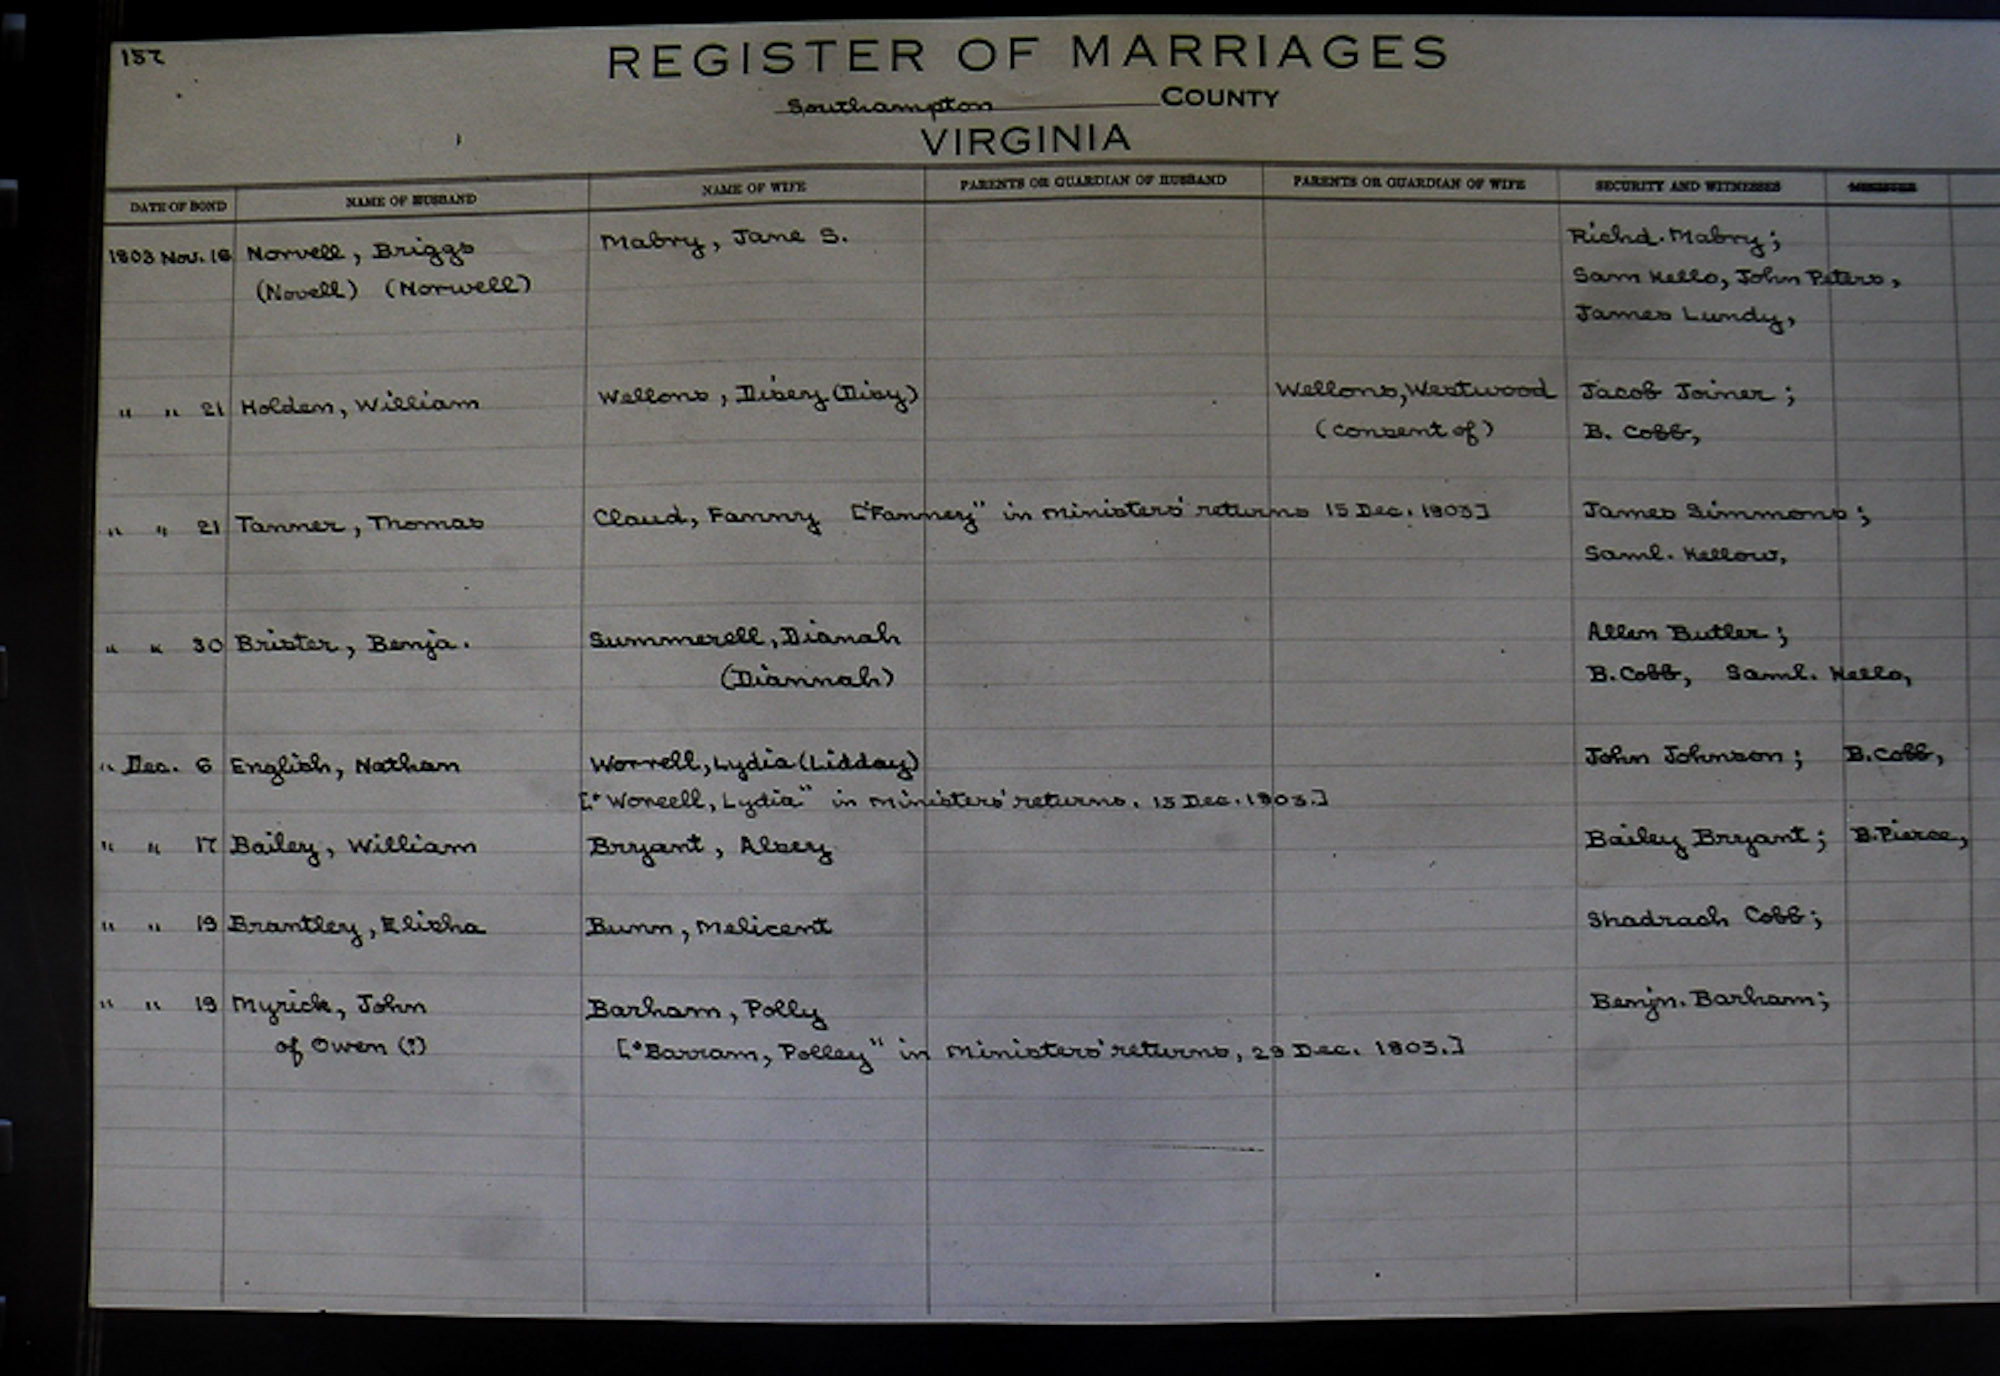 157
REGISTER OF MARRIAGES
Southampton COUNTY
VIRGINIA
DATE OF BOND NAME OF HUSBAND NAME OF WIFE PARENTS OR GUARDIAN OF HUSBAND PARENTS OR GUARDIAN OF WIFE SECURITY AND WITNESSES MINISTER
1803 Nov. 16 Norvell, Briggs Mabry, Jane S. Richd. Mabry;
(Novell) (Norwell) Sam Kello, John Peters,
James Lundy,
" " 21 Holden, William Wellons, Disey (Disy) Wellons, Westwood Jacob Joiner;
(consent of) B. Cobb,
" " 21 Tanner, Thomas Claud, Fanny ["Fanney" in ministers' returns 15 Dec. 1803] James Simmons;
Saml. Kellow,
" " 30 Brister, Benja. Summerell, Dianah Allen Butler;
(Diannah) B. Cobb, Saml. Kello,
" Dec. 6 English, Nathan Worrell, Lydia (Lidday) John Johnson; B. Cobb,
["Woreell, Lydia" in ministers' returns. 15 Dec. 1803.]
" " 17 Bailey, William Bryant, Alsey Bailey Bryant; B. Pierce,
" " 19 Brantley, Elisha Bunn, Melicent Shadrach Cobb;
" " 19 Myrick, John Barham, Polly Benjn. Barham;
of Owen (?) ["Barram, Polley" in ministers' returns, 29 Dec. 1803.]